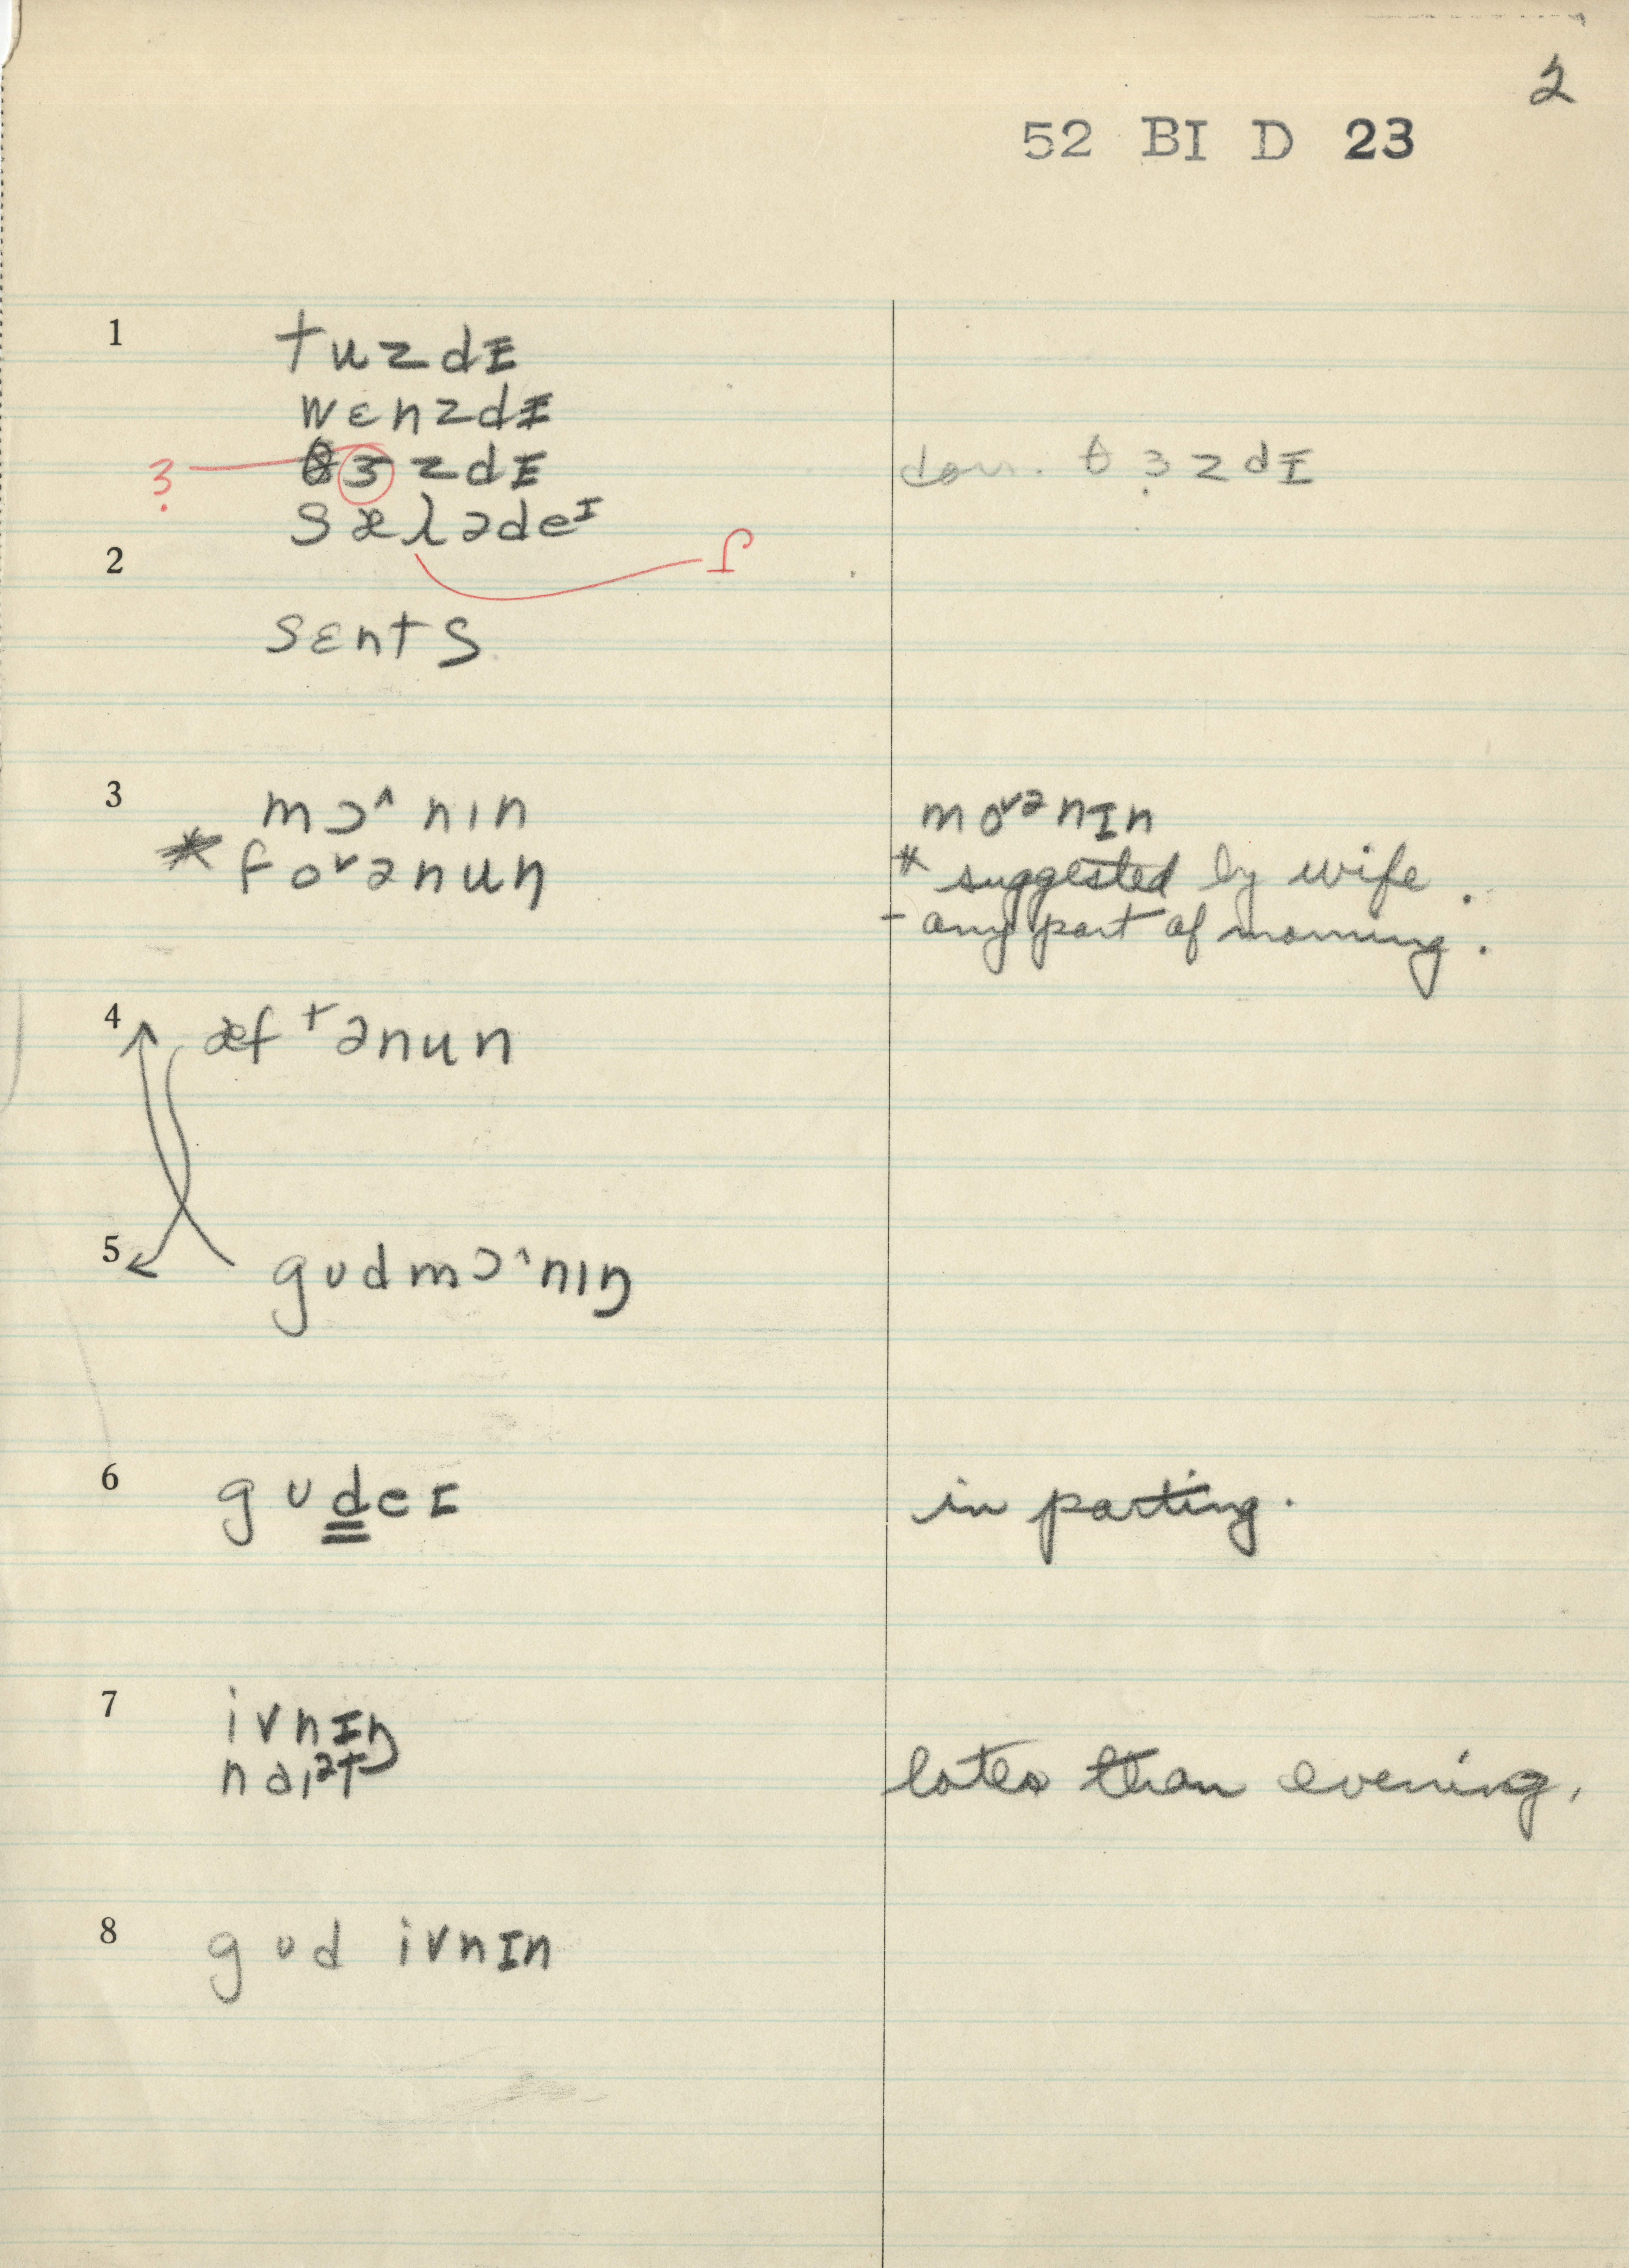 2
52 BI D 23
1 tuzdɪ
wɛnzdɪ
θɜzdɪ corr. θɜ̣zdɪ
ɜ̣
sæɾədeᶦ
ɾ
2
sɛnts
3 mɔ^nın moᵛənɪn
* foᵛənun * suggested by wife.
- any part of morning.
4 æftənun
5 gudmɔ^nıŋ
6 gudeɪ in parting.
7 ivnɪŋ
naıət later than evening.
8 gud ivnɪn